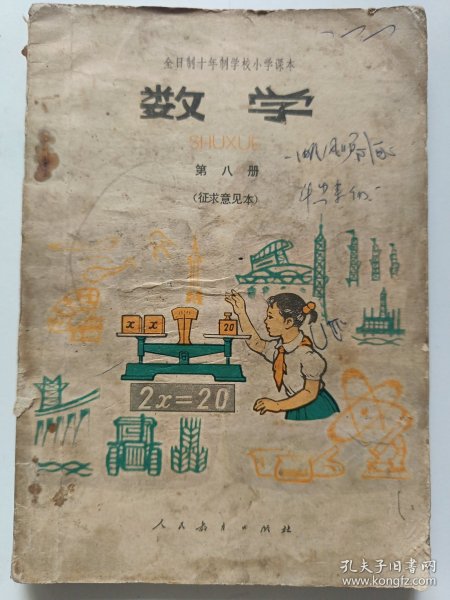 全日制十年制学校小学课本
数学
SHUXUE
第八册
(征求意见本)
x x 20
2x=20
人民教育出版社
孔夫子旧书网
www.kongfz.com